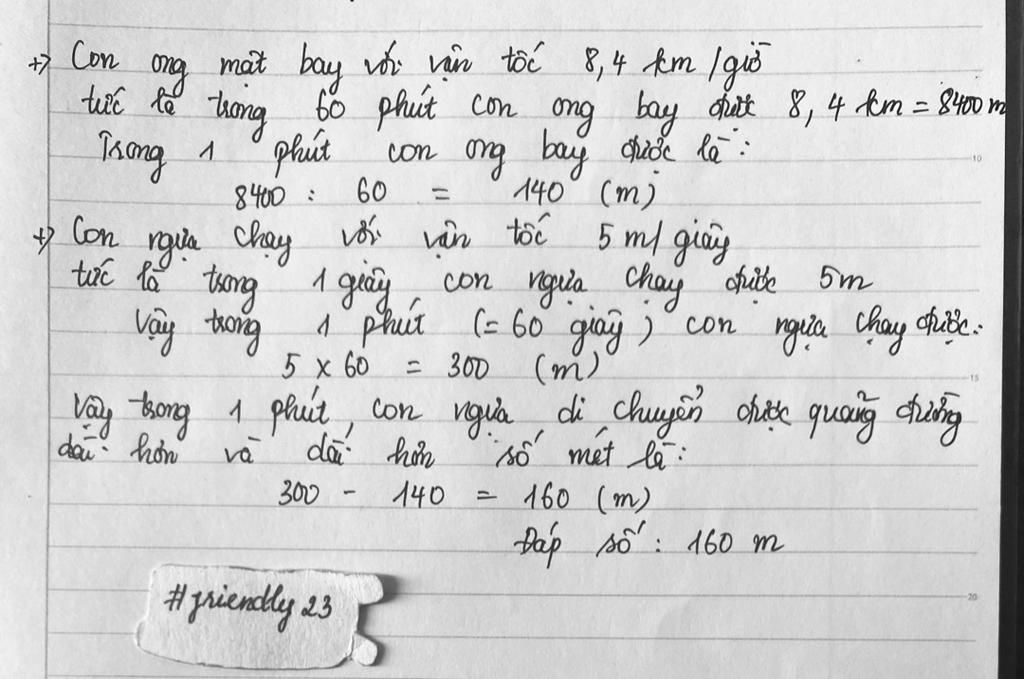 +) Con ong mật bay với vận tốc 8,4 km/giờ
tức là trong 60 phút con ong bay được 8,4 km = 8400 m
Trong 1 phút con ong bay được là:
8400 : 60 = 140 (m)
+) Con ngựa chạy với vận tốc 5 m/giây
tức là trong 1 giây con ngựa chạy được 5m
Vậy trong 1 phút (= 60 giây) con ngựa chạy được:
5 x 60 = 300 (m)
Vậy trong 1 phút, con ngựa di chuyển được quãng đường
dài hơn và dài hơn số mét là:
300 - 140 = 160 (m)
Đáp số: 160 m
#friendly23
10
15
20